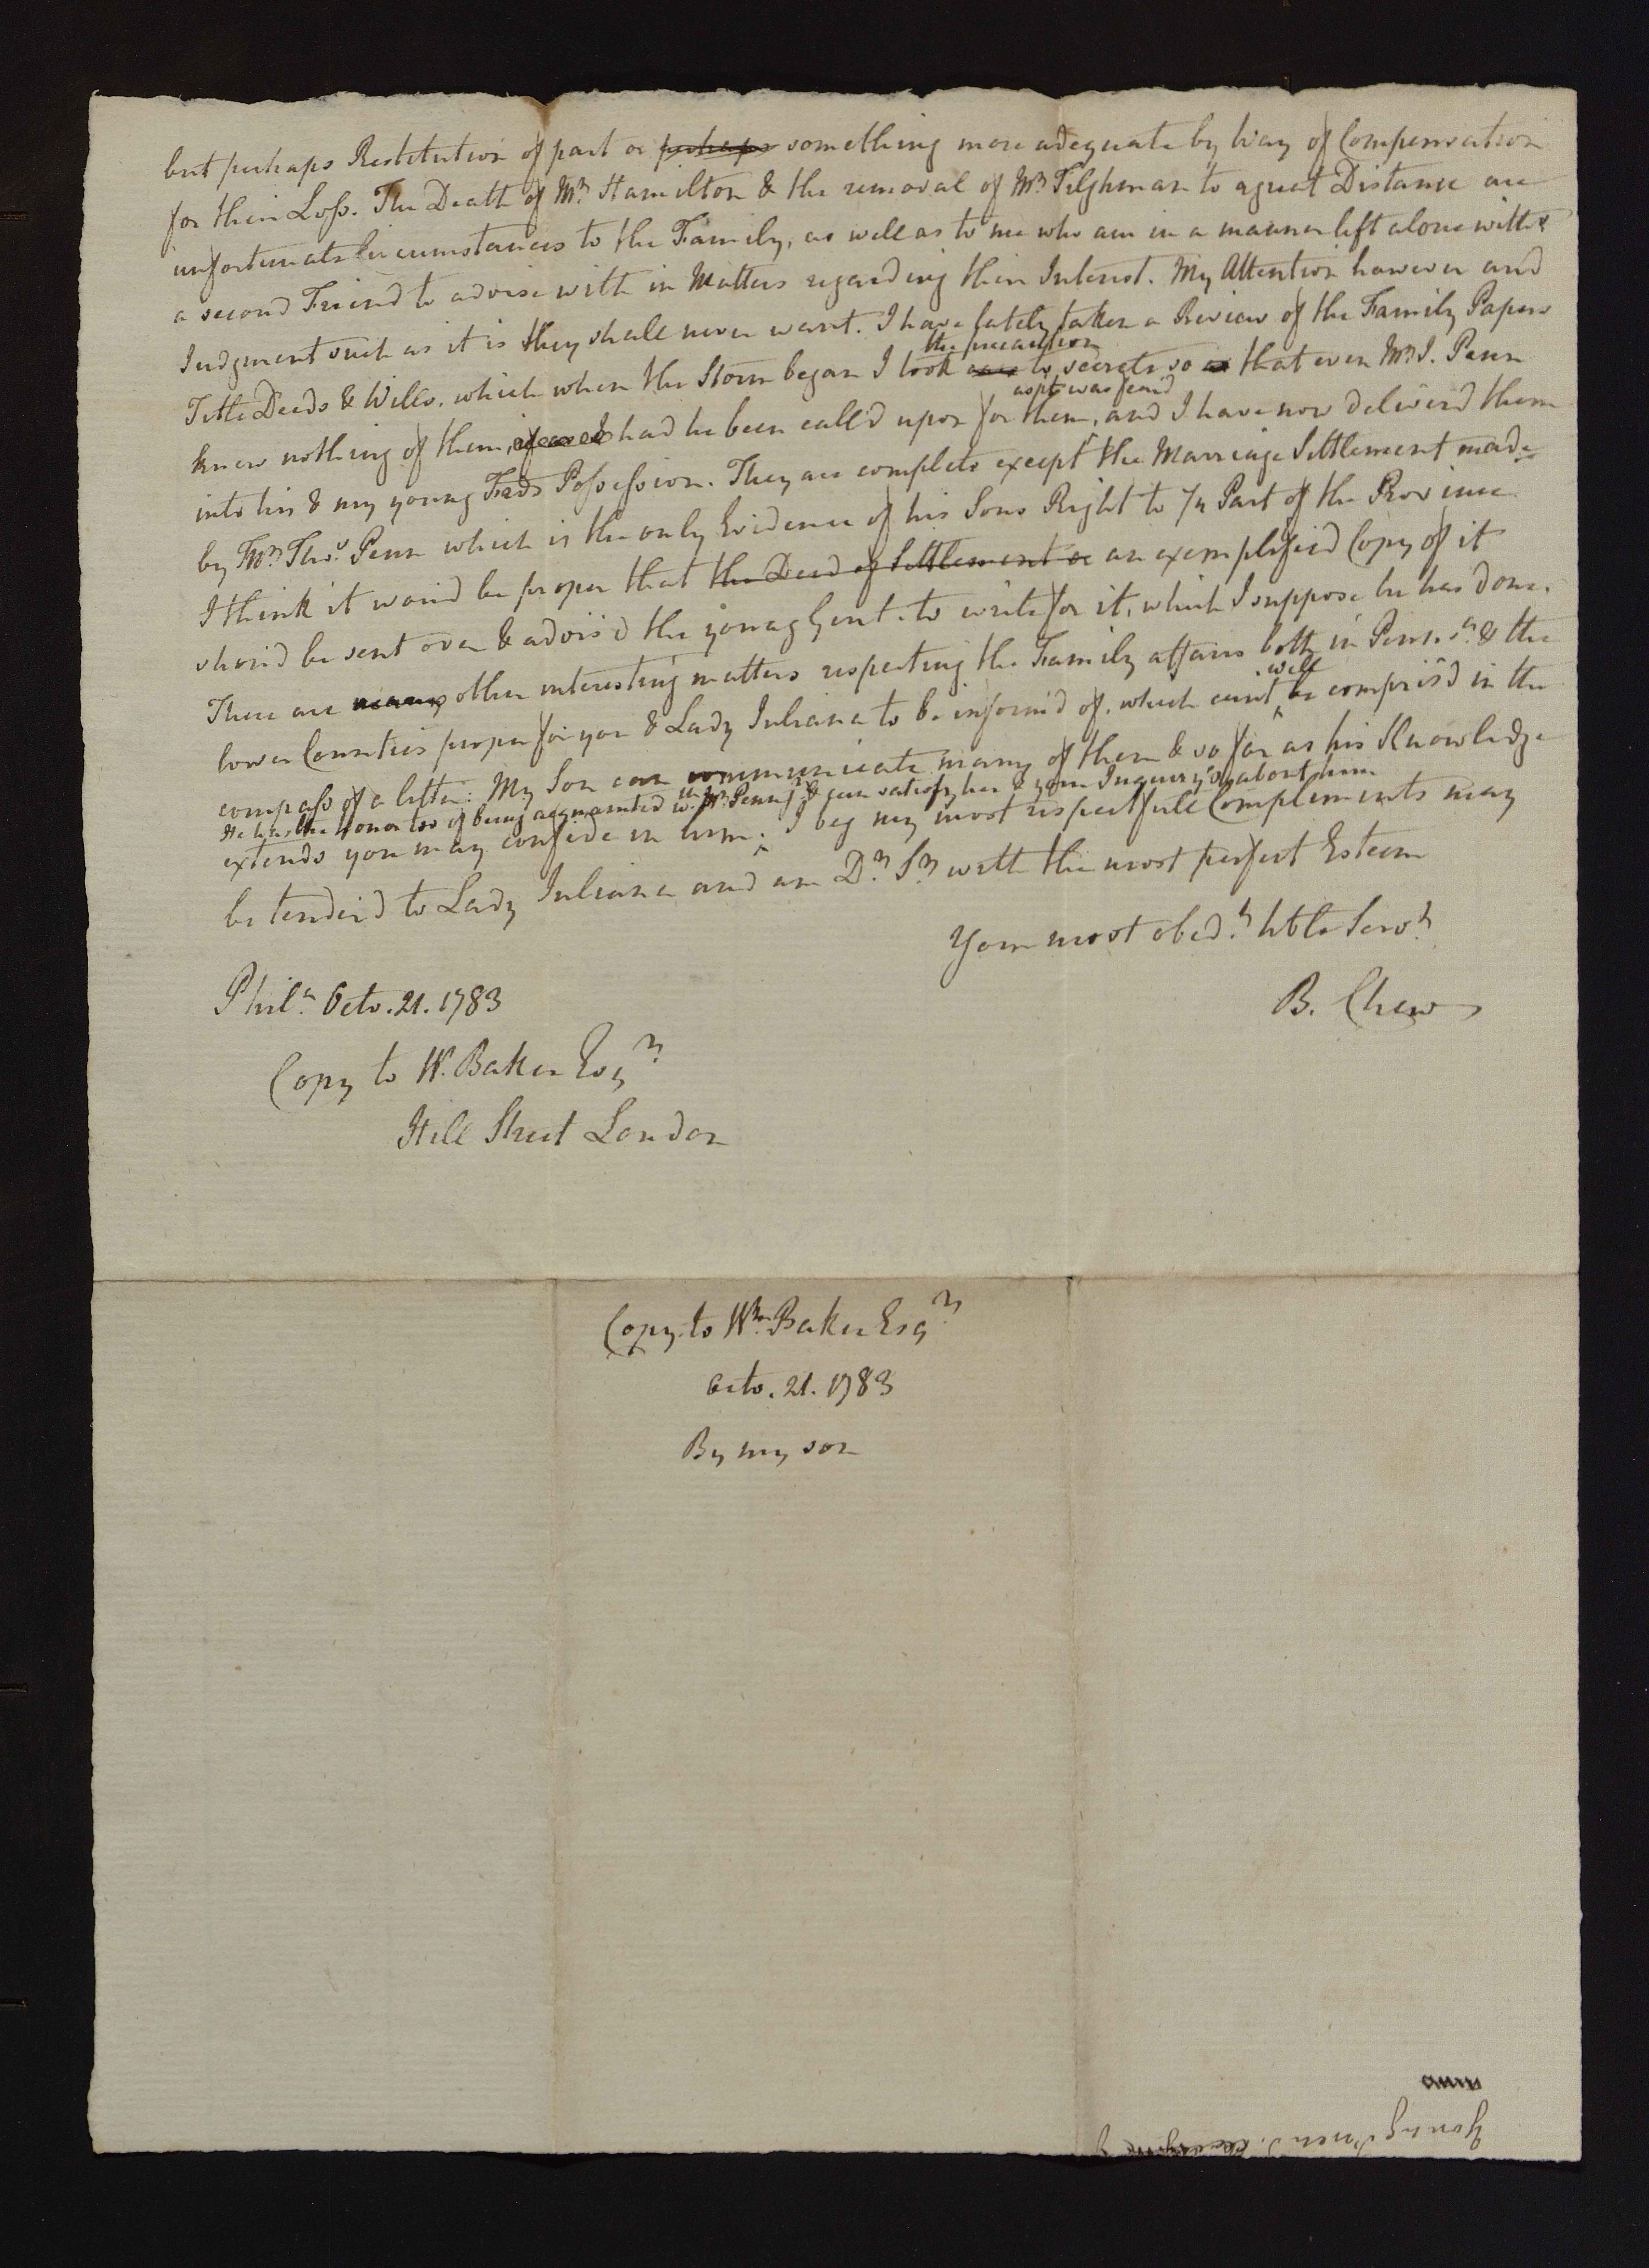 but perhaps Restitution of part or perhaps something more adequate by Way of Compensation
for their Loss. The Death of Mr. Hamilton & the removal of Mr. Tilghman to a great Distance are
unfortunate Circumstances to the Family, as well as to me who am in a manner left alone witht
a second Friend to advise with in Matters regarding their Interest. My Attention however and
Judgment such as it is they shall never want. I have lately taken a Review of the Family Papers
the precaution
Title Deeds & Wills, which when the Storm began I took care to secrete so as that even Mr. J. Penn
as it was fear'd
knew nothing of them, had he been call'd upon for them, and I have now deliver'd them
into his & my young Frds Possession. They are complete except the Marriage Settlement made
by Mr. Thos. Penn which is the only Evidence of his Sons Right to 3/4 Part of the Province
I think it wou'd be proper that the Deed of Settlement or an exemplified Copy of it
shou'd be sent over & advis'd the young Gent. to write for it, which I suppose he has done.
There are many other interesting matters respecting the Family affairs both in Penns.a & the
well
lower Counties proper for you & Lady Juliana to be inform'd of, which can't be compris'd in the
compass of a letter: My Son can communicate many of them & so far as his Knowledge
He has the honor too of being acquainted wth. Mr. Penn & can satisfy her & your Inquiry's about him
extends you may confide in him. I beg my most respectfull Complements may
be tender'd to Lady Juliana and am Dr. Sr. with the most perfect Esteem
Your most obed.t hble Serv.t
B. Chew
Phila. Octo. 21. 1783
Copy to W. Baker Esqr.
Hill Street London
Copy to Wm. Baker Esqr.
Octo. 21. 1783
By my son
Young Friend